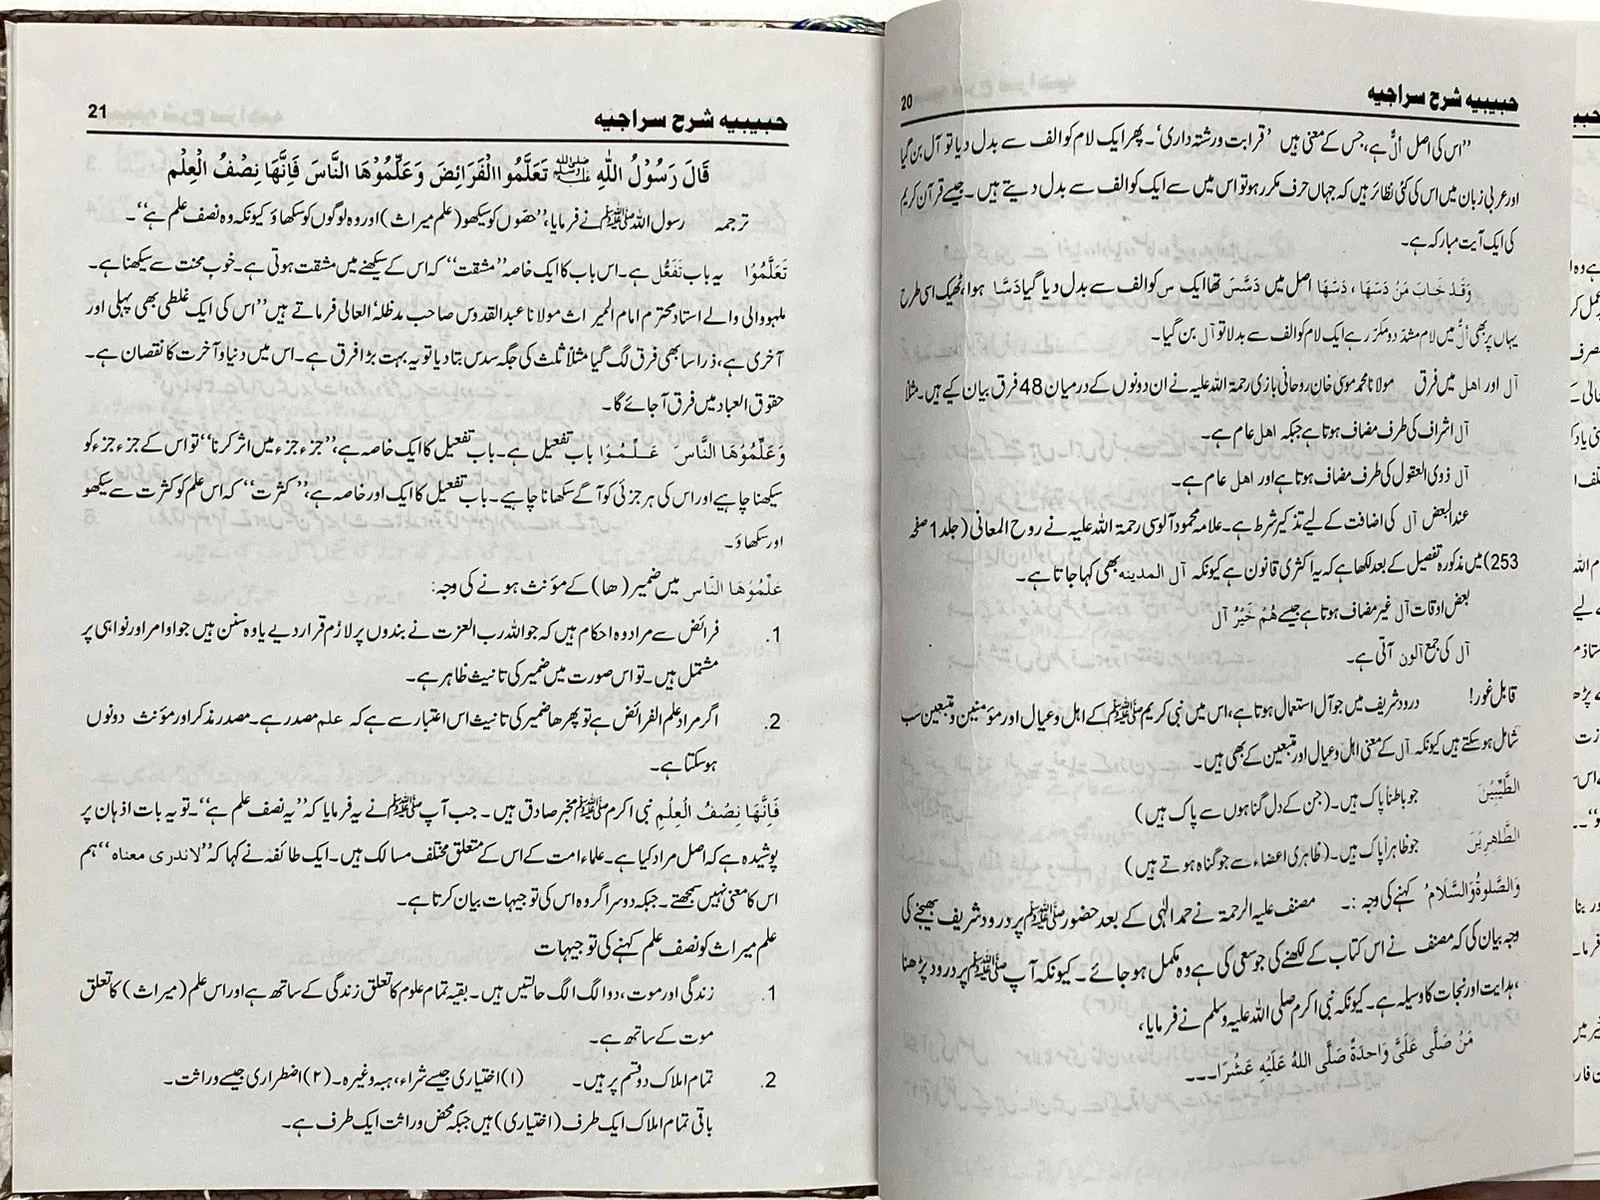 حبیبیہ شرح سراجیہ
20
”اس کی اصل أَلٌّ ہے، جس کے معنی ہیں ’قرابت ورشتہ داری‘۔ پھر ایک لام کو الف سے بدل دیا تو آل بن گیا
اور عربی زبان میں اس کی کئی نظائر ہیں کہ جہاں حرف مکرر ہو تو اس میں سے ایک کو الف سے بدل دیتے ہیں۔ جیسے قرآن کریم
کی ایک آیت مبارکہ ہے۔
وَقَدْ خَابَ مَنْ دَسّٰهَا، دَسّٰهَا اصل میں دَسَّسَ تھا ایک س کو الف سے بدل دیا گیا دَسَّا ہوا، ٹھیک اسی طرح
یہاں پر بھی أَلٌّ میں لام مشدد و مکرر ہے ایک لام کو الف سے بدلا تو آل بن گیا۔
آل اور اھل میں فرق مولانا محمد موسیٰ خان روحانی بازی رحمۃ اللہ علیہ نے ان دونوں کے درمیان 48 فرق بیان کیے ہیں۔ مثلاً
آل اشراف کی طرف مضاف ہوتا ہے جبکہ اھل عام ہے۔
آل ذوی العقول کی طرف مضاف ہوتا ہے اور اھل عام ہے۔
عند البعض آل کی اضافت کے لیے تذکیر شرط ہے۔ علامہ محمود آلوسی رحمۃ اللہ علیہ نے روح المعانی (جلد 1 صفحہ
253) میں مذکورہ تفصیل کے بعد لکھا ہے کہ یہ اکثری قانون ہے کیونکہ آل المدینه بھی کہا جاتا ہے۔
بعض اوقات آل غیر مضاف ہوتا ہے جیسے هُمْ خَيْرُ آل
آل کی جمع آلون آتی ہے۔
قابل غور! درود شریف میں جو آل استعمال ہوتا ہے، اس میں نبی کریم ﷺ کے اہل و عیال اور مؤمنین و متبعین سب
شامل ہو سکتے ہیں کیونکہ آل کے معنی اہل و عیال اور متبعین کے بھی ہیں۔
الطَّيِّبِيْنَ جو باطناً پاک ہیں۔ (جن کے دل گناہوں سے پاک ہیں)
الطَّاهِرِيْنَ جو ظاہراً پاک ہیں۔ (ظاہری اعضاء سے جو گناہ ہوتے ہیں)
وَالصَّلٰوةُ وَالسَّلَامُ کہنے کی وجہ :۔ مصنف علیہ الرحمۃ نے حمد الٰہی کے بعد حضور ﷺ پر درود شریف بھیجنے کی
وجہ بیان کی کہ مصنف نے اس کتاب کے لکھنے کی جو سعی کی ہے وہ مکمل ہو جائے۔ کیونکہ آپ ﷺ پر درود پڑھنا
ہدایت اور نجات کا وسیلہ ہے۔ کیونکہ نبی اکرم صلی اللہ علیہ وسلم نے فرمایا،
مَنْ صَلّٰی عَلَیَّ وَاحِدَةً صَلَّی اللهُ عَلَيْهِ عَشْرًا۔۔۔
حبیبیہ شرح سراجیہ
21
قَالَ رَسُوْلُ اللهِ ﷺ تَعَلَّمُوا الْفَرَائِضَ وَعَلِّمُوْهَا النَّاسَ فَاِنَّهَا نِصْفُ الْعِلْمِ
ترجمہ رسول اللہ ﷺ نے فرمایا، ”حصّوں کو سیکھو (علم میراث) اور وہ لوگوں کو سکھاؤ کیونکہ وہ نصف علم ہے“۔
تَعَلَّمُوْا یہ باب تَفَعُّل ہے۔ اس باب کا ایک خاصہ ”مشقت“ کہ اس کے سیکھنے میں مشقت ہوتی ہے۔ خوب محنت سے سیکھنا ہے۔
ملہووالی والے استاد محترم امام المیراث مولانا عبدالقدوس صاحب مدظلہٗ العالی فرماتے ہیں ”اس کی ایک غلطی بھی پہلی اور
آخری ہے، ذرا سا بھی فرق لگ گیا مثلاً ثلث کی جگہ سدس بتا دیا تو یہ بہت بڑا فرق ہے۔ اس میں دنیا و آخرت کا نقصان ہے۔
حقوق العباد میں فرق آ جائے گا۔
وَعَلِّمُوْهَا النَّاسَ عَلِّمُوْا باب تفعیل ہے۔ باب تفعیل کا ایک خاصہ ہے، ”جزء جزء میں اثر کرنا“ تو اس کے جزء جزء کو
سیکھنا چاہیے اور اس کی ہر جزئی کو آگے سکھانا چاہیے۔ باب تفعیل کا ایک اور خاصہ ہے، ”کثرت“ کہ اس علم کو کثرت سے سیکھو
اور سکھاؤ۔
عَلِّمُوْهَا النَّاسَ میں ضمیر (ھا) کے مؤنث ہونے کی وجہ:
1. فرائض سے مراد وہ احکام ہیں کہ جو اللہ رب العزت نے بندوں پر لازم قرار دیے یا وہ سنن ہیں جو اوامر اور نواہی پر
مشتمل ہیں۔ تو اس صورت میں ضمیر کی تانیث ظاہر ہے۔
2. اگر مراد علم الفرائض ہے تو پھر ھا ضمیر کی تانیث اس اعتبار سے ہے کہ علم مصدر ہے۔ مصدر مذکر اور مؤنث دونوں
ہو سکتا ہے۔
فَاِنَّهَا نِصْفُ الْعِلْمِ نبی اکرم ﷺ مخبر صادق ہیں۔ جب آپ ﷺ نے یہ فرمایا کہ ”یہ نصف علم ہے“۔ تو یہ بات اذہان پر
پوشیدہ ہے کہ اصل مراد کیا ہے۔ علماء امت کے اس کے متعلق مختلف مسالک ہیں۔ ایک طائفہ نے کہا کہ ”لاندری معناه“ ہم
اس کا معنی نہیں سمجھتے۔ جبکہ دوسرا گروہ اس کی توجیہات بیان کرتا ہے۔
علم میراث کو نصف علم کہنے کی توجیہات
1. زندگی اور موت، دو الگ الگ حالتیں ہیں۔ بقیہ تمام علوم کا تعلق زندگی کے ساتھ ہے اور اس علم (میراث) کا تعلق
موت کے ساتھ ہے۔
2. تمام املاک دو قسم پر ہیں۔ (۱) اختیاری جیسے شراء، ہبہ وغیرہ۔ (۲) اضطراری جیسے وراثت۔
باقی تمام املاک ایک طرف (اختیاری) ہیں جبکہ محض وراثت ایک طرف ہے۔